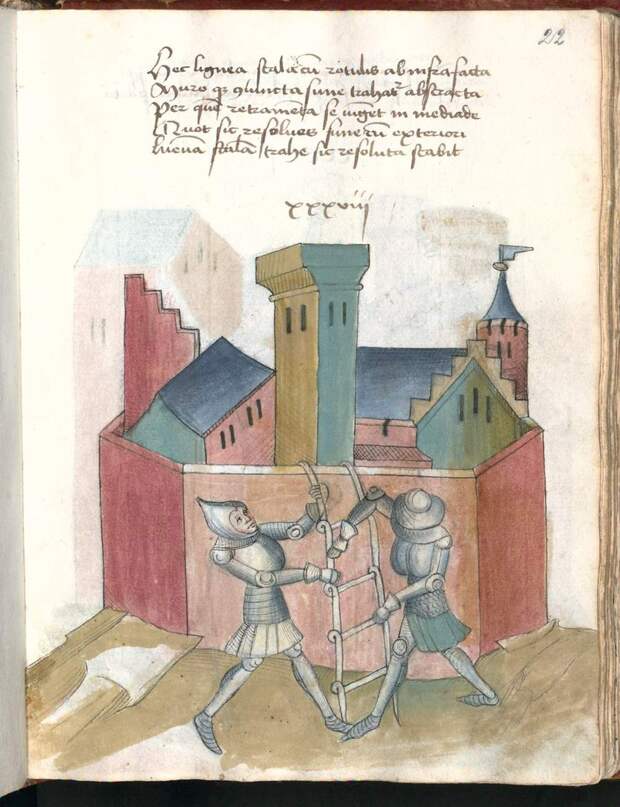 212
Hec lignea scala cū rotulis ab infra facta
Muro qȝ iūncta fune trahatʳ abstracta
Per quē retramēta se iūget in mediade
Quot sic resolues fune cū exteriori
scalā trahe sic resoluta stabit
xxxviii